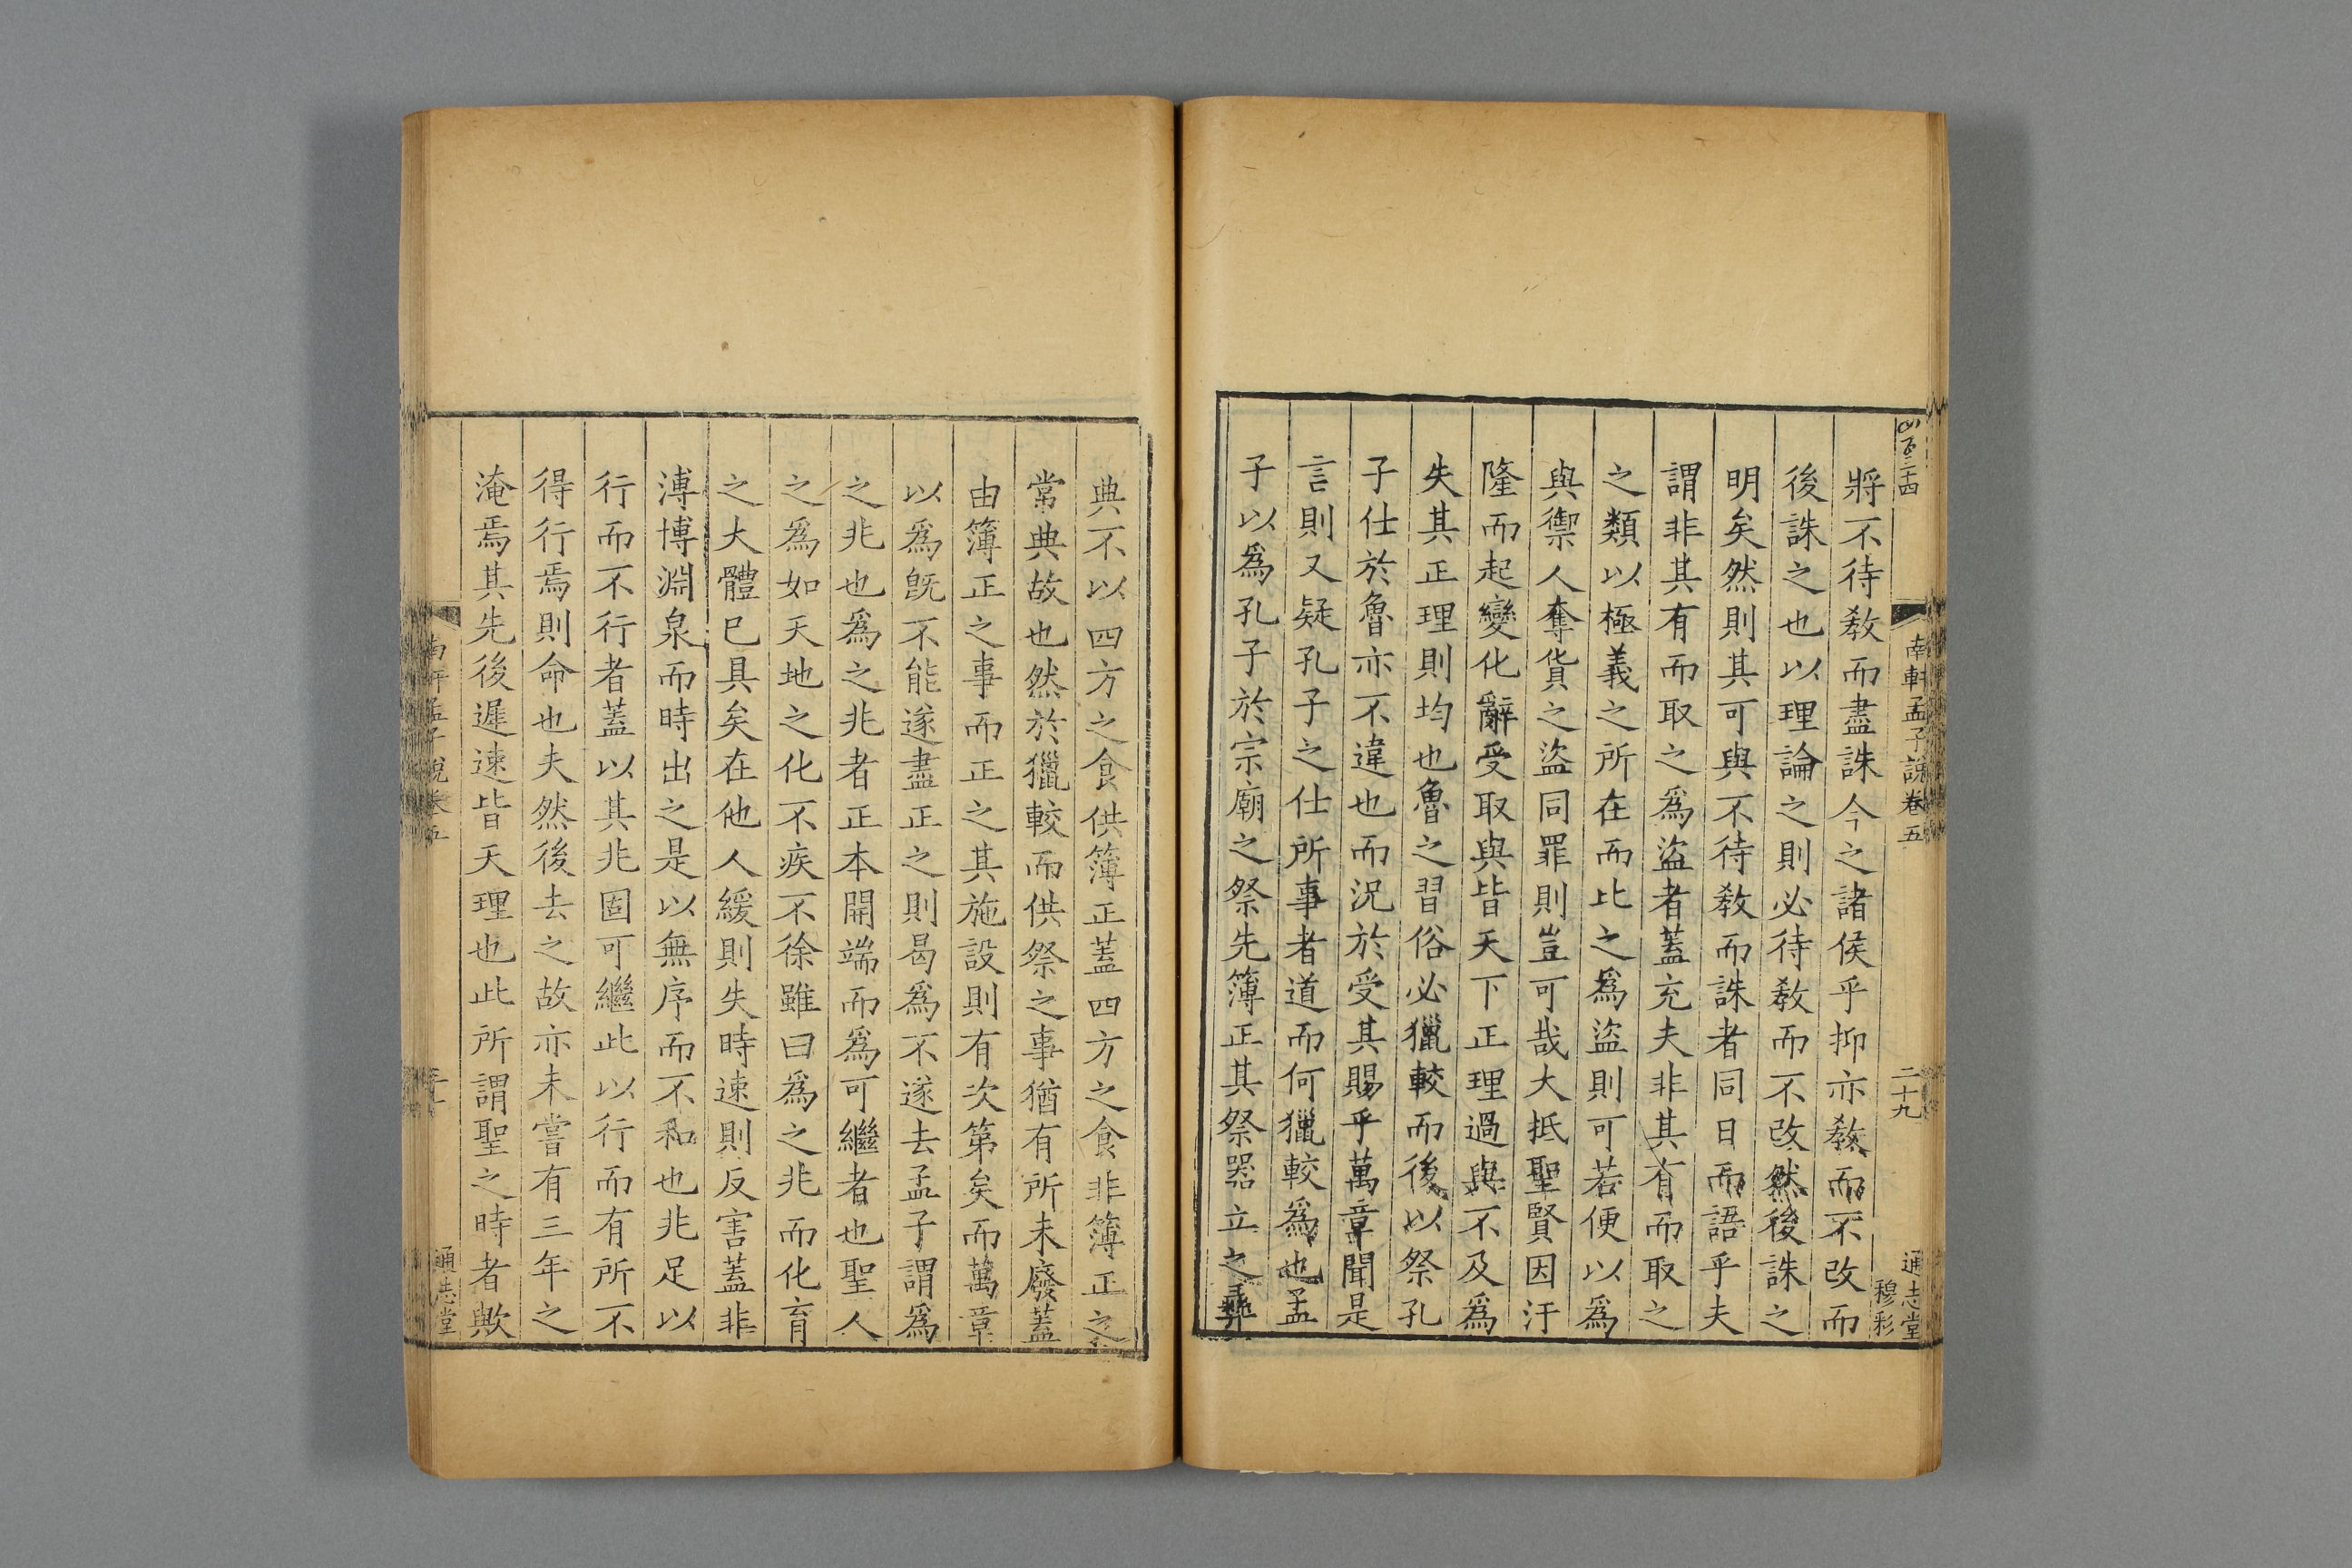 將不待敎而盡誅今之諸侯乎抑亦敎而不改而
後誅之也以理論之則必待敎而不改然後誅之
明矣然則其可與不待敎而誅者同日而語乎夫
謂非其有而取之爲盜者蓋充夫非其有而取之
之類以極義之所在而比之爲盜則可若便以爲
與禦人奪貨之盜同罪則豈可哉大抵聖賢因汙
隆而起變化辭受取與皆天下正理過與不及爲
失其正理則均也魯之習俗必獵較而後以祭孔
子仕於魯亦不違也而況於受其賜乎萬章聞是
言則又疑孔子之仕所事者道而何獵較爲也孟
子以爲孔子於宗廟之祭先簿正其祭器立之彝
南軒孟子說卷五
二十九
通志堂
穆彩
典不以四方之食供簿正蓋四方之食非簿正之
常典故也然於獵較而供祭之事猶有所未廢蓋
由簿正之事而正之其施設則有次第矣而萬章
以爲旣不能遂盡正之則曷爲不遂去孟子謂爲
之兆也爲之兆者正本開端而爲可繼者也聖人
之爲如天地之化不疾不徐雖曰爲之兆而化育
之大體已具矣在他人緩則失時速則反害蓋非
溥博淵泉而時出之是以無序而不和也兆足以
行而不行者蓋以其兆固可繼此以行而有所不
得行焉則命也夫然後去之故亦未嘗有三年之
淹焉其先後遲速皆天理也此所謂聖之時者歟
南軒孟子說卷五
通志堂